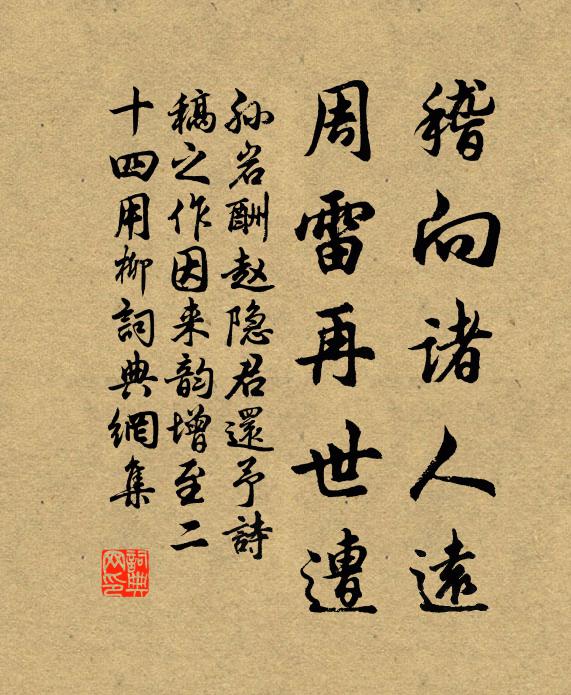 嵇向诸人遠
周雷再世遭
孙岩酬赵隐君還予詩
稿之作因来韵增至二
十四用柳詞典網集
詞典网印